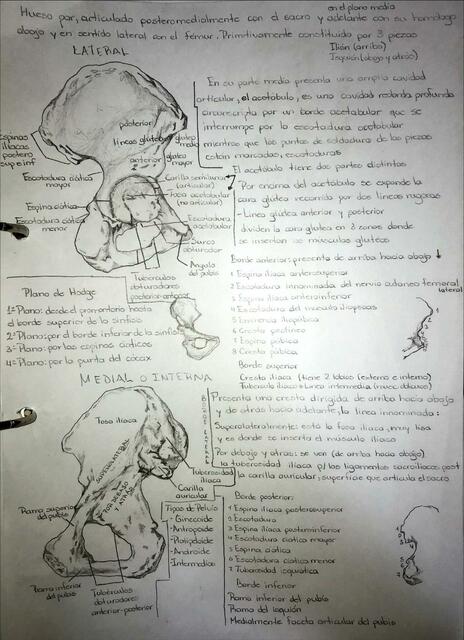 Hueso par, articulado posteromedialmente con el sacro y adelante con su homólogo
en el plano medio
abajo y en sentido lateral con el fémur. Primitivamente constituido por 3 piezas
Ilión (arriba)
Isquión (abajo y atrás)
LATERAL
posterior
líneas glúteas
anterior
glúteo medio
glúteo mayor
Espinas
ilíacas
postero
sup e inf
Escotadura ciática
mayor
Espina ciática
Escotadura ciática
menor
Carilla semilunar
(articular)
Fosa acetabular
(no articular)
Escotadura
acetabular
Surco
obturador
Ángulo
del pubis
Tubérculos
obturadores
posterior-anterior
En su parte media presenta una amplia cavidad
articular, el acetábulo, es una cavidad redonda profunda
circunscripta por un borde acetabular que se
interrumpe por la escotadura acetabular
mientras que los puntos de soldadura de las piezas
están marcadas, escotaduras
El acetábulo tiene dos partes distintas
Por encima del acetábulo se expande la
cara glútea recorrida por dos líneas rugosas
- Línea glútea anterior y posterior
dividen la cara glútea en 3 zonas donde
se insertan los músculos glúteos
Borde anterior: presenta de arriba hacia abajo
1 Espina ilíaca anterosuperior
2 Escotadura innominada del nervio cutáneo femoral
lateral
3 Espina ilíaca anteroinferior
4 Escotadura del músculo iliopsoas
5 Eminencia iliopúbica
6 Cresta pectínea
7 Espina púbica
8 Cresta púbica
Borde superior
Cresta ilíaca (tiene 2 labios (externo e interno)
Tubérculo ilíaco Línea intermedia (musc oblicuos)
Plano de Hodge
1º Plano: desde el promontorio hasta
el borde superior de la sínfisis
2º Plano: por el borde inferior de la sínfisis
3º Plano: por las espinas ciáticas
4º Plano: por la punta del cóccix
MEDIAL O INTERNA
Fosa ilíaca
SUPEROLATERAL
POR DEBAJO
Y ATRÁS
Rama superior
del pubis
Rama inferior
del pubis
Tubérculos
obturadores
anterior-posterior
Tuberosidad
ilíaca
Carilla
auricular
Tipos de Pelvis
- Ginecoide
- Antropoide
- Platipeloide
- Androide
- Intermedios
Presenta una cresta dirigida de arriba hacia abajo
y de atrás hacia adelante, la línea innominada:
Superolateralmente: está la fosa ilíaca, muy lisa
y es donde se inserta el músculo ilíaco
Por debajo y atrás: se ven (de arriba hacia abajo)
la tuberosidad ilíaca p/ los ligamentos sacroilíacos post
la carilla auricular; superficie que articula el sacro
Borde posterior:
1 Espina ilíaca posterosuperior
2 Escotadura
3 Espina ilíaca posteroinferior
4 Escotadura ciática mayor
5 Espina ciática
6 Escotadura ciática menor
7 Tuberosidad isquiática
Borde inferior
Rama inferior del pubis
Rama del isquión
Medialmente faceta articular del pubis